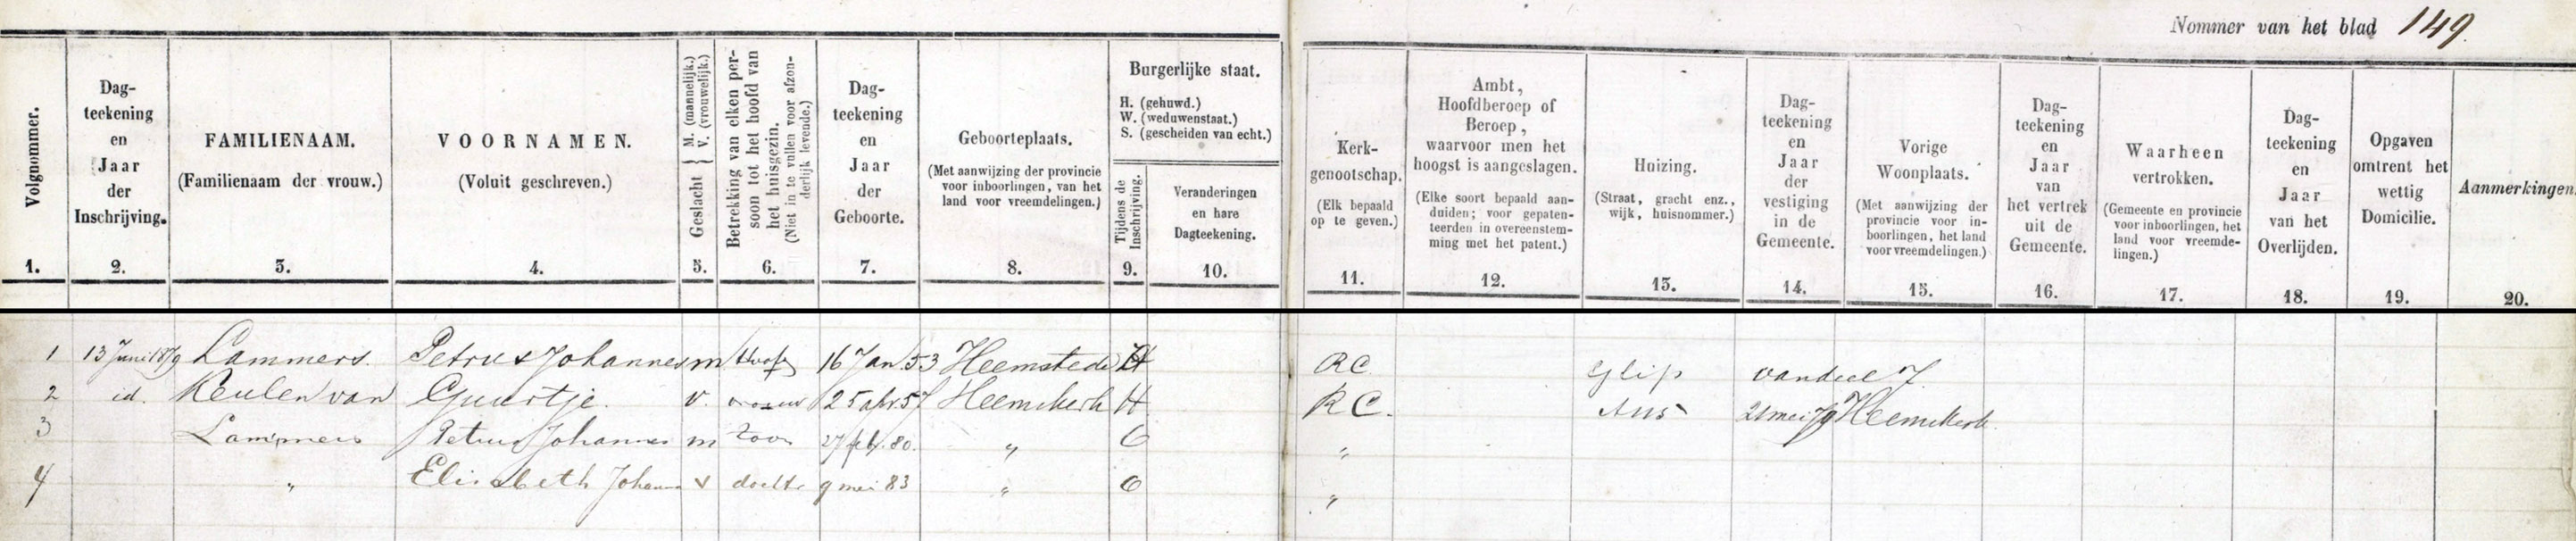 Nommer van het blad 149.
Volgnommer.
1.
Dag-
teekening
en
Jaar
der
Inschrijving.
2.
FAMILIENAAM.
(Familienaam der vrouw.)
3.
VOORNAMEN.
(Voluit geschreven.)
4.
Geslacht { M. (mannelijk.)
V. (vrouwelijk.)
5.
Betrekking van elken per-
soon tot het hoofd van
het huisgezin.
(Niet in te vullen voor afzon-
derlijk levende.)
6.
Dag-
teekening
en
Jaar
der
Geboorte.
7.
Geboorteplaats.
(Met aanwijzing der provincie
voor inboorlingen, van het
land voor vreemdelingen.)
8.
Burgerlijke staat.
H. (gehuwd.)
W. (weduwenstaat.)
S. (gescheiden van echt.)
Tijdens de
Inschrijving.
9.
Veranderingen
en hare
Dagteekening.
10.
Kerk-
genootschap.
(Elk bepaald
op te geven.)
11.
Ambt,
Hoofdberoep of
Beroep,
waarvoor men het
hoogst is aangeslagen.
(Elke soort bepaald aan-
duiden; voor gepaten-
teerden in overeenstem-
ming met het patent.)
12.
Huizing.
(Straat, gracht enz.,
wijk, huisnommer.)
13.
Dag-
teekening
en
Jaar
der
vestiging
in de
Gemeente.
14.
Vorige
Woonplaats.
(Met aanwijzing der
provincie voor in-
boorlingen, het land
voor vreemdelingen.)
15.
Dag-
teekening
en
Jaar
van
het vertrek
uit de
Gemeente.
16.
Waarheen
vertrokken.
(Gemeente en provincie
voor inboorlingen, het
land voor vreemde-
lingen.)
17.
Dag-
teekening
en
Jaar
van het
Overlijden.
18.
Opgaven
omtrent het
wettig
Domicilie.
19.
Aanmerkingen.
20.
1 13 Juni 1879 Lammers. Petrus Johannes m hoofd 16 Jan. 53 Heemstede H RC Glip van deel 7.
2 id. Keulen van Guurtje. v. vrouw 25 apr. 57 Heemskerk H RC. 21 mei 79 Heemskerk
3 Lammers Petrus Johannes m zoon 27 feb. 80. " O "
4 " Elisabeth Johanna v dochter 9 mei 83 " O "